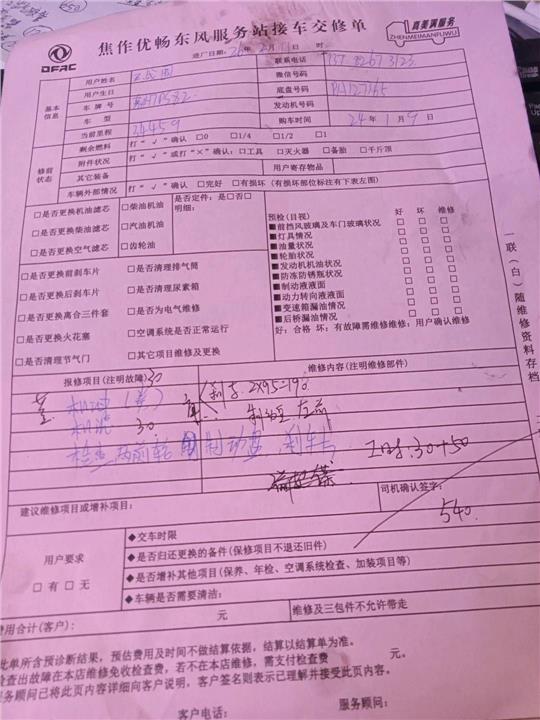 DFAC
焦作优畅东风服务站接车交修单
真美满服务
ZHENMEIMANFUWU
进厂日期: 26年2月1日 时
基本信息
用户姓名 联系电话
用户生日 微信号码
车牌号 底盘号码
车型 发动机号码
当前里程 24459 购车时间 24年1月9日
修前状态
剩余燃料 打“√”确认 □0 □1/4 □1/2 □1
附件状况 打“√”或打“×”确认: □工具 □灭火器 □备胎 □千斤顶
其它装备 用户寄存物品
车辆外部情况 打“√”确认 □完好 □有损坏 (有损坏部位标注有下表左图)
□是否更换机油滤芯 □柴油机油 是否定件: 是□否□
□是否更换柴油滤芯 □汽油机油 明细:
□是否更换空气滤芯 □齿轮油
□是否更换前刹车片 □是否清理排气筒
□是否更换后刹车片 □是否清理尿素箱
□是否更换离合三件套 □是否为电气维修
□是否更换火花塞 □空调系统是否正常运行
□是否清理节气门 □其它项目维修及更换
预检(目视) 好 坏 维修
■前挡风玻璃及车门玻璃状况 □ □ □
■灯具情况 □ □ □
■油量状况 □ □ □
■轮胎状况 □ □ □
■发动机机油状况 □ □ □
■防冻防锈瓶状况 □ □ □
■制动液液面 □ □ □
■动力转向液液面 □ □ □
■变速箱漏油情况 □ □ □
■后桥漏油情况 □ □ □
好: 合格 坏: 有故障需维修维修: 用户确认维修
一联(白)随维修资料存档
报修项目(注明故障) 30 维修内容(注明维修部件)
机滤 2x95=190
机油 30 左前
检查 两前轮 制动盘 刹车 工时: 30+50
司机确认签字:
540
建议维修项目或增补项目:
用户要求
□有 □无
◆交车时限
◆是否归还更换的备件(保修项目不退还旧件)
◆是否增补其他项目(保养、年检、空调系统检查、加装项目等)
◆车辆是否需要清洁:
费用合计(客户): 元 维修及三包件不允许带走
此单所含预诊断结果, 预估费用及时间不做结算依据, 结算以结算单为准。
检查出故障在本店维修免收检查费, 若不在本店维修, 需支付检查费 元。
服务顾问已将此页内容详细向客户说明, 客户签名则表示已理解并接受此页内容。
客户电话: 服务顾问: